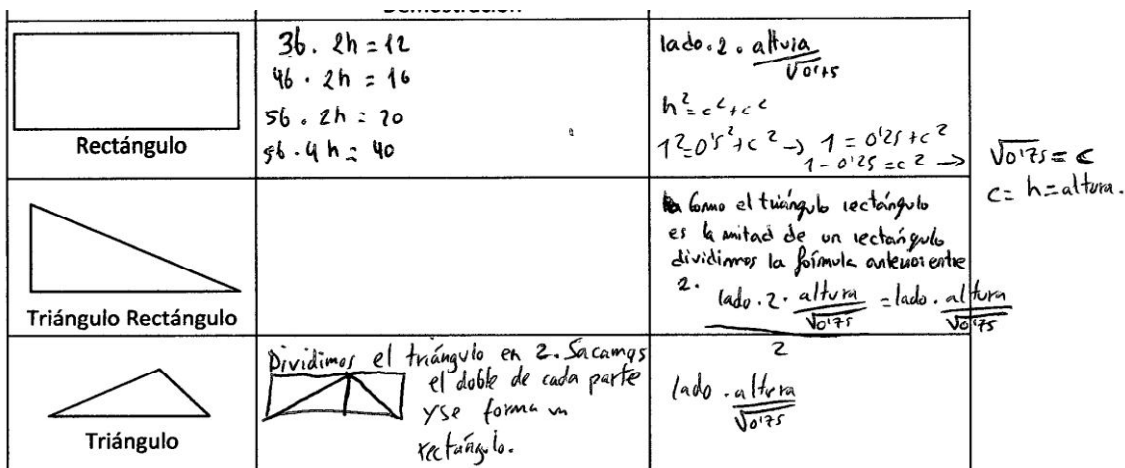 Demostración
Rectángulo
3b. 2h = 12
4b . 2h = 16
5b . 2h = 20
5b . 4h = 40
lado . 2 . altura / √0'75
h² = c² + c²
1² = 0'5² + c² → 1 = 0'25 + c²
1 - 0'25 = c² →
√0'75 = c
c = h = altura.
Triángulo Rectángulo
Como el triángulo rectángulo
es la mitad de un rectángulo
dividimos la fórmula anterior entre
2.
lado . 2 . altura / √0'75 = lado . altura / √0'75
2
Triángulo
Dividimos el triángulo en 2. Sacamos
el doble de cada parte
y se forma un
rectángulo.
lado . altura / √0'75